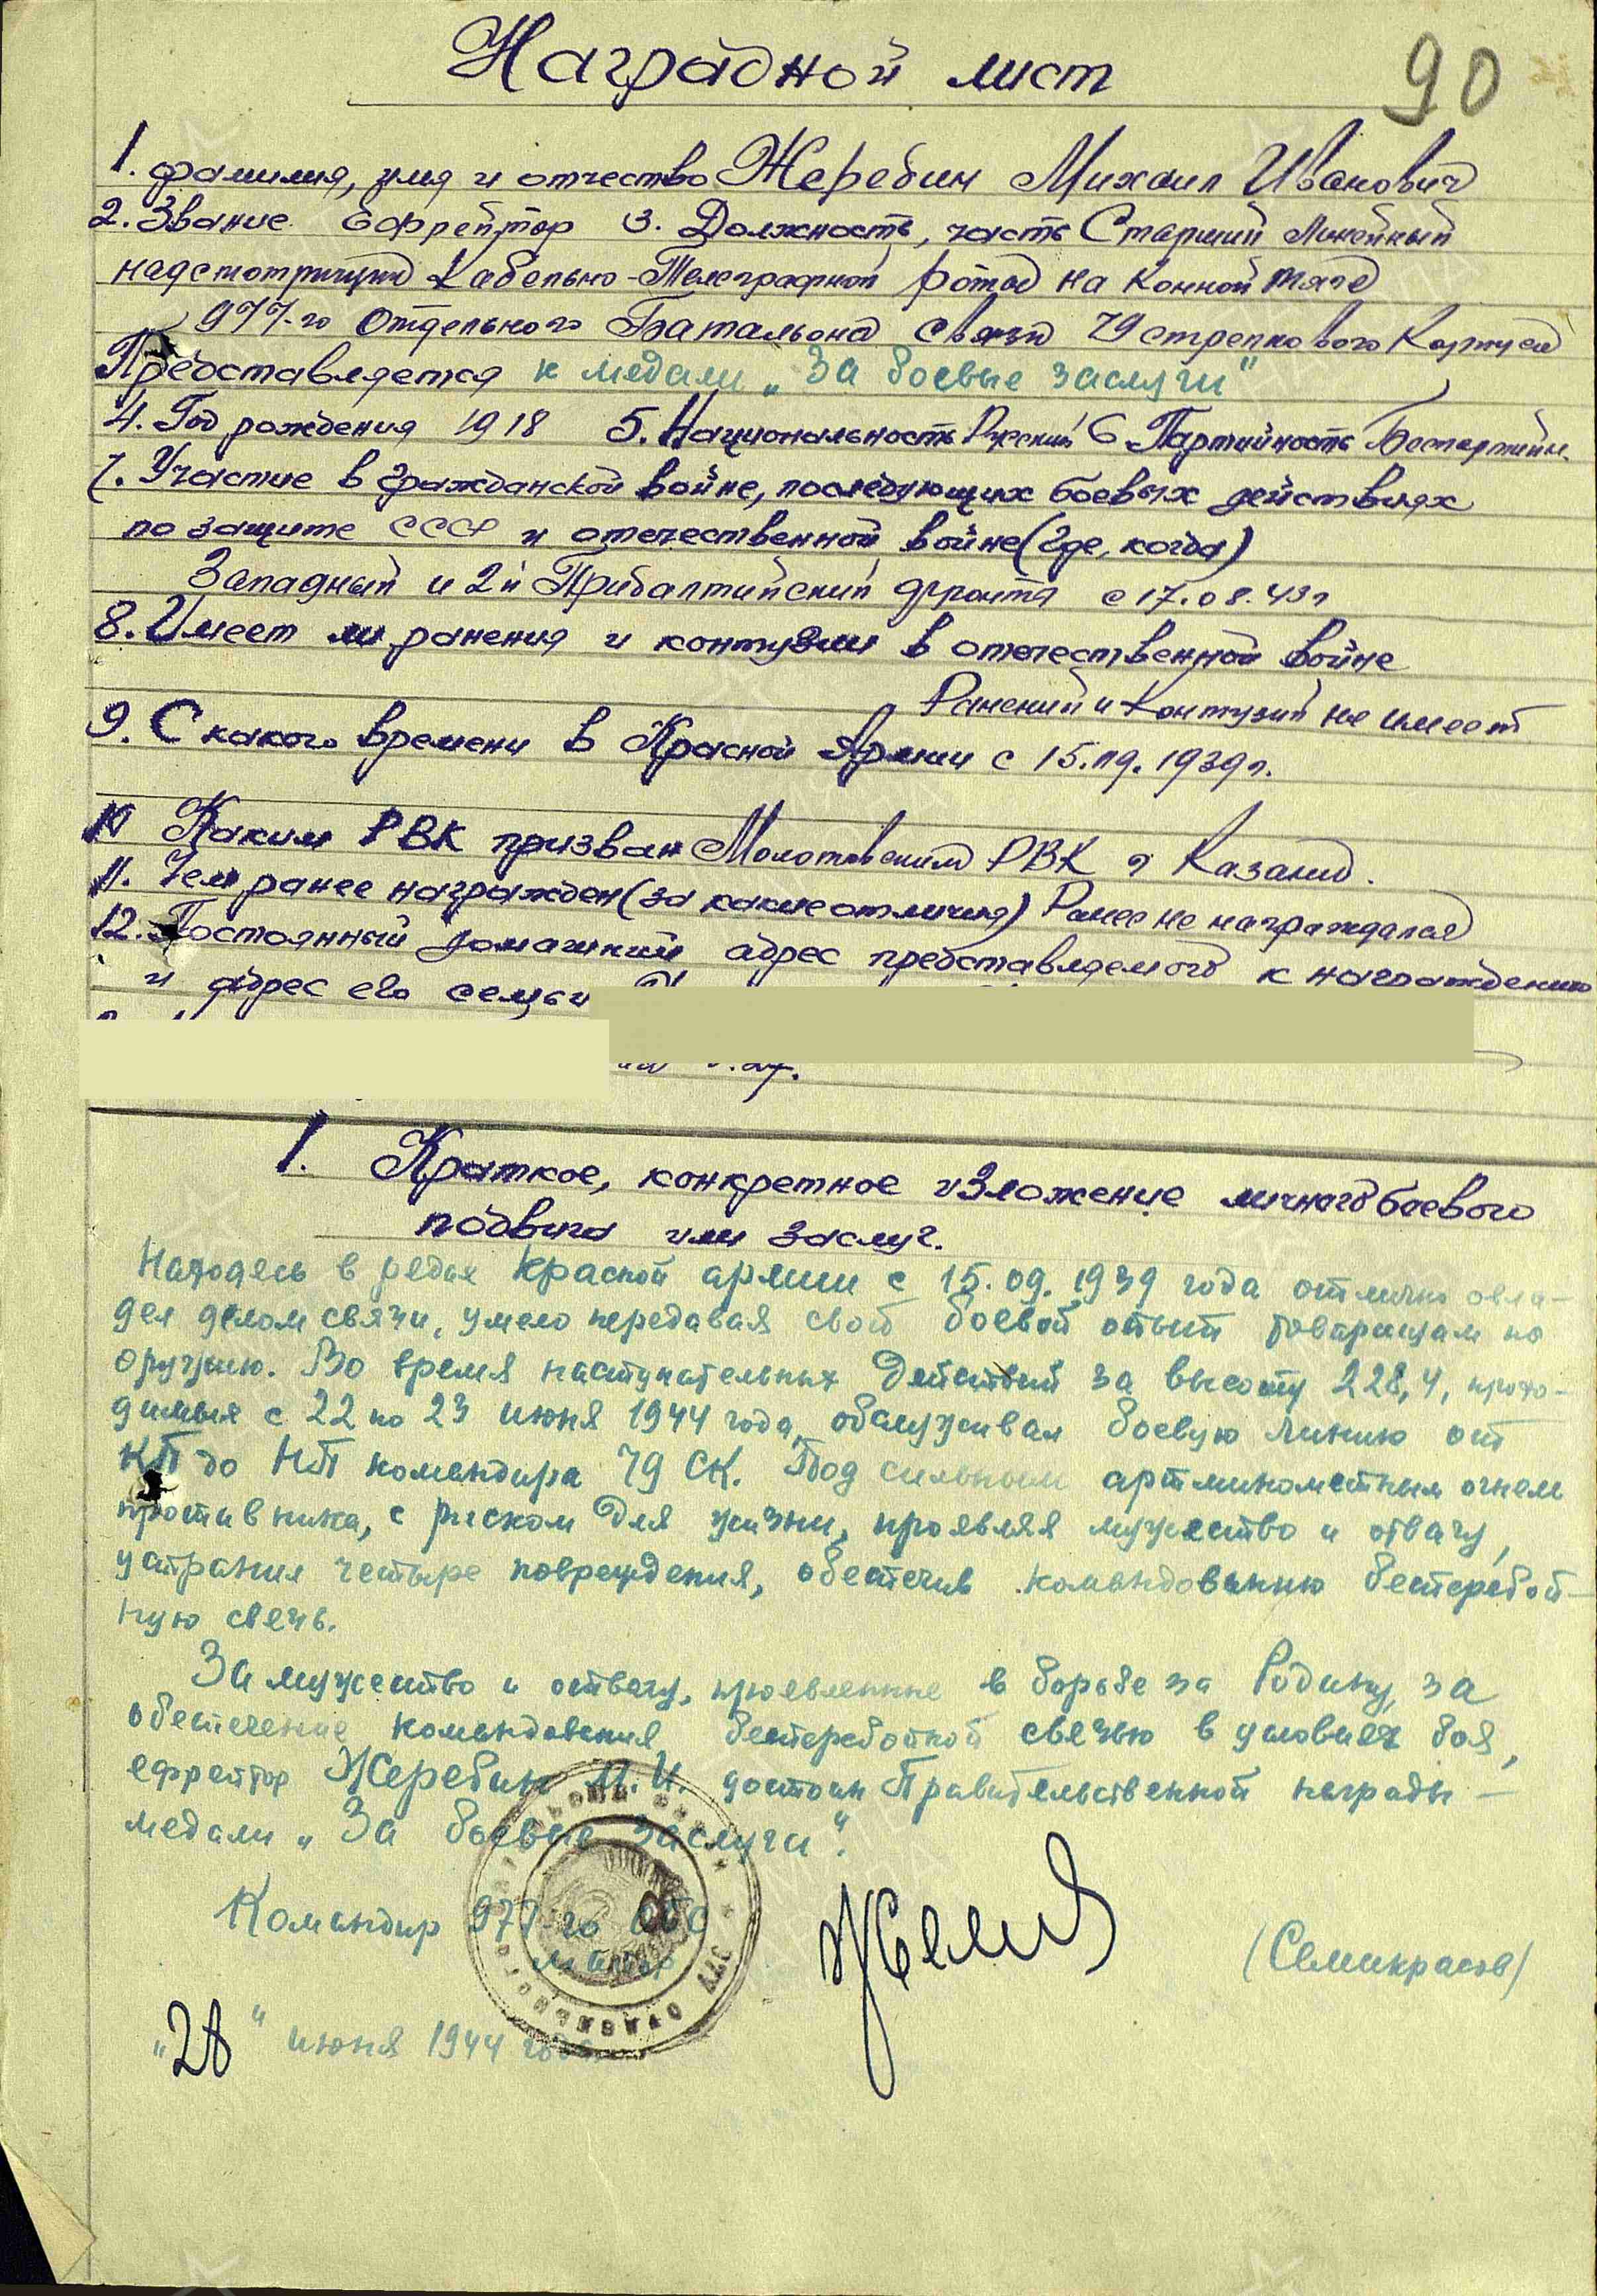 Наградной лист
90
1. фамилия, имя и отчество Жеребин Михаил Иванович
2. Звание Ефрейтор 3. Должность, часть Старший Линейный
надсмотрщик Кабельно-Телеграфной роты на Конной тяге
977-го Отдельного Батальона Связи 79 стрелкового Корпуса
Представляется к медали „За боевые заслуги"
4. Год рождения 1918 5. Национальность Русский 6. Партийность Беспартийн.
7. Участие в гражданской войне, последующих боевых действиях
по защите СССР и отечественной войне (где, когда)
Западный и 2й Прибалтийский фронта с 17.08.43г
8. Имеет ли ранения и контузии в отечественной войне
Ранений и Контузий не имеет
9. С какого времени в Красной Армии с 15.09.1939г.
10 Каким РВК призван Молотовским РВК г Казани.
11. Чем ранее награжден (за какие отличия) Ранее не награждался
12. Постоянный домашний адрес представляемого к награждению
и адрес его семьи
1. Краткое, конкретное изложение личного боевого
подвига или заслуг.
Находясь в рядах Красной армии с 15.09.1939 года отлично овла-
дел делом связи, умело передавая свой боевой опыт товарищам по
оружию. Во время наступательных действий за высоту 228,4, прохо-
димых с 22 по 23 июня 1944 года, обслуживал боевую линию от
КП до НП командира 79 СК. Под сильным артминометным огнем
противника, с риском для жизни, проявляя мужество и отвагу,
устранил четыре повреждения, обеспечив командованию бесперебой-
ную связь.
За мужество и отвагу, проявленные в борьбе за Родину, за
обеспечение командования бесперебойной связью в условиях боя,
ефрейтор Жеребин М.И. достоин Правительственной награды -
медали „За боевые заслуги".
Командир 977-го ОБС
майор
(Семикрасов)
„28" июня 1944 года